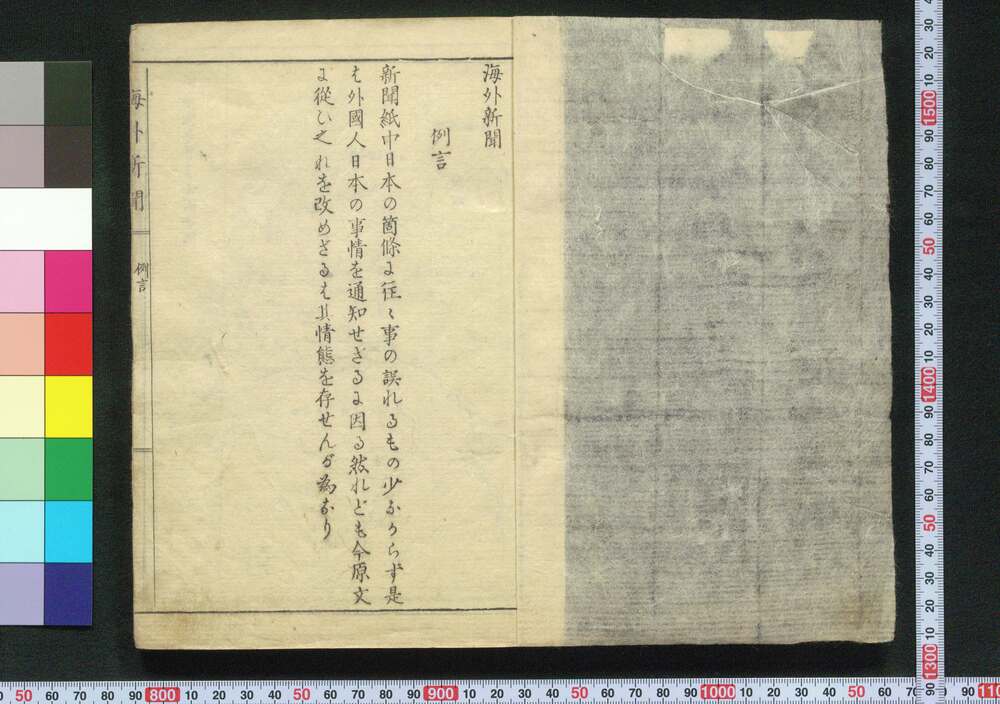 海外新聞
例言
新聞紙中日本の箇條に往々事の誤れるもの少なからず是
は外國人日本の事情を通知せざるに因る然れども今原文
に從ひ之れを改めざるは其情態を存せんが為なり
海外新聞
例言
40 30 20 10 1500 90 80 70 60 50 40 30 20 10 1400 90 80 70 60 50 40 30 20 10 1300 90
50 60 70 80 90 800 10 20 30 40 50 60 70 80 90 900 10 20 30 40 50 60 70 80 90 1000 10 20 30 40 50 60 70 90